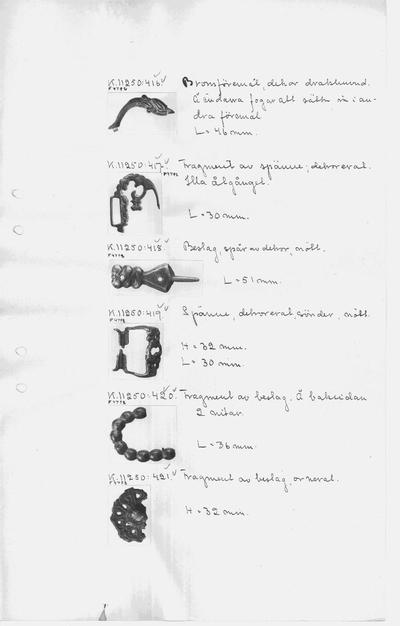 K.11250:416. Bronsföremål, dekor drakhuvud.
Å ändarna fogar att sättas in i an-
dra föremål
L = 46 mm.
K.11250:417. Fragment av spänne, dekorerat.
Illa åtgånget.
L = 30 mm.
K.11250:418. Beslag, spår av dekor, nött.
L = 51 mm.
K.11250:419. Spänne, dekorerat, sönder, nött.
H = 32 mm.
L = 30 mm.
K.11250:420. Fragment av beslag. Å baksidan
2 nitar.
L = 36 mm.
K.11250:421. Fragment av beslag, ornerat.
H = 32 mm.